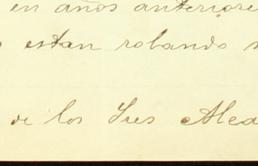 en años anteriores
estan robando
de los Sres Alca